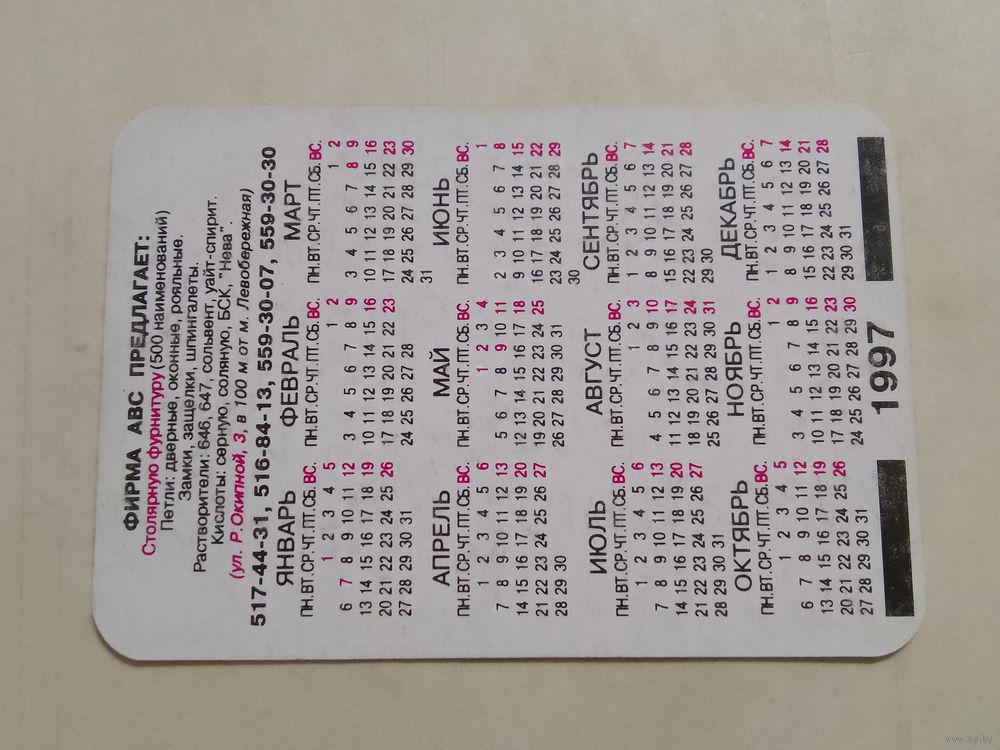 ФИРМА АВС ПРЕДЛАГАЕТ:
Столярную фурнитуру (500 наименований)
Петли: дверные, оконные, рояльные.
Замки, защелки, шпингалеты.
Растворители: 646, 647, сольвент, уайт-спирит.
Кислоты: серную, соляную, БСК, "Нева".
(ул. Р.Окипной, 3, в 100 м от м. Левобережная)
517-44-31, 516-84-13, 559-30-07, 559-30-30
ЯНВАРЬ
ПН.ВТ.СР.ЧТ.ПТ.СБ.ВС.
1 2 3 4 5
6 7 8 9 10 11 12
13 14 15 16 17 18 19
20 21 22 23 24 25 26
27 28 29 30 31
ФЕВРАЛЬ
ПН.ВТ.СР.ЧТ.ПТ.СБ.ВС.
1 2
3 4 5 6 7 8 9
10 11 12 13 14 15 16
17 18 19 20 21 22 23
24 25 26 27 28
МАРТ
ПН.ВТ.СР.ЧТ.ПТ.СБ.ВС.
1 2
3 4 5 6 7 8 9
10 11 12 13 14 15 16
17 18 19 20 21 22 23
24 25 26 27 28 29 30
31
АПРЕЛЬ
ПН.ВТ.СР.ЧТ.ПТ.СБ.ВС.
1 2 3 4 5 6
7 8 9 10 11 12 13
14 15 16 17 18 19 20
21 22 23 24 25 26 27
28 29 30
МАЙ
ПН.ВТ.СР.ЧТ.ПТ.СБ.ВС.
1 2 3 4
5 6 7 8 9 10 11
12 13 14 15 16 17 18
19 20 21 22 23 24 25
26 27 28 29 30 31
ИЮНЬ
ПН.ВТ.СР.ЧТ.ПТ.СБ.ВС.
1
2 3 4 5 6 7 8
9 10 11 12 13 14 15
16 17 18 19 20 21 22
23 24 25 26 27 28 29
30
ИЮЛЬ
ПН.ВТ.СР.ЧТ.ПТ.СБ.ВС.
1 2 3 4 5 6
7 8 9 10 11 12 13
14 15 16 17 18 19 20
21 22 23 24 25 26 27
28 29 30 31
АВГУСТ
ПН.ВТ.СР.ЧТ.ПТ.СБ.ВС.
1 2 3
4 5 6 7 8 9 10
11 12 13 14 15 16 17
18 19 20 21 22 23 24
25 26 27 28 29 30 31
СЕНТЯБРЬ
ПН.ВТ.СР.ЧТ.ПТ.СБ.ВС.
1 2 3 4 5 6 7
8 9 10 11 12 13 14
15 16 17 18 19 20 21
22 23 24 25 26 27 28
29 30
ОКТЯБРЬ
ПН.ВТ.СР.ЧТ.ПТ.СБ.ВС.
1 2 3 4 5
6 7 8 9 10 11 12
13 14 15 16 17 18 19
20 21 22 23 24 25 26
27 28 29 30 31
НОЯБРЬ
ПН.ВТ.СР.ЧТ.ПТ.СБ.ВС.
1 2
3 4 5 6 7 8 9
10 11 12 13 14 15 16
17 18 19 20 21 22 23
24 25 26 27 28 29 30
ДЕКАБРЬ
ПН.ВТ.СР.ЧТ.ПТ.СБ.ВС.
1 2 3 4 5 6 7
8 9 10 11 12 13 14
15 16 17 18 19 20 21
22 23 24 25 26 27 28
29 30 31
1997
www.ay.by